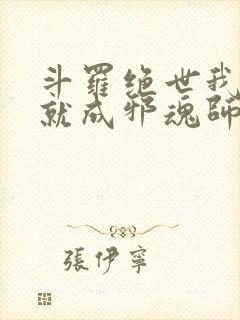 斗羅絕世我
就成邪魂師
張伊寧